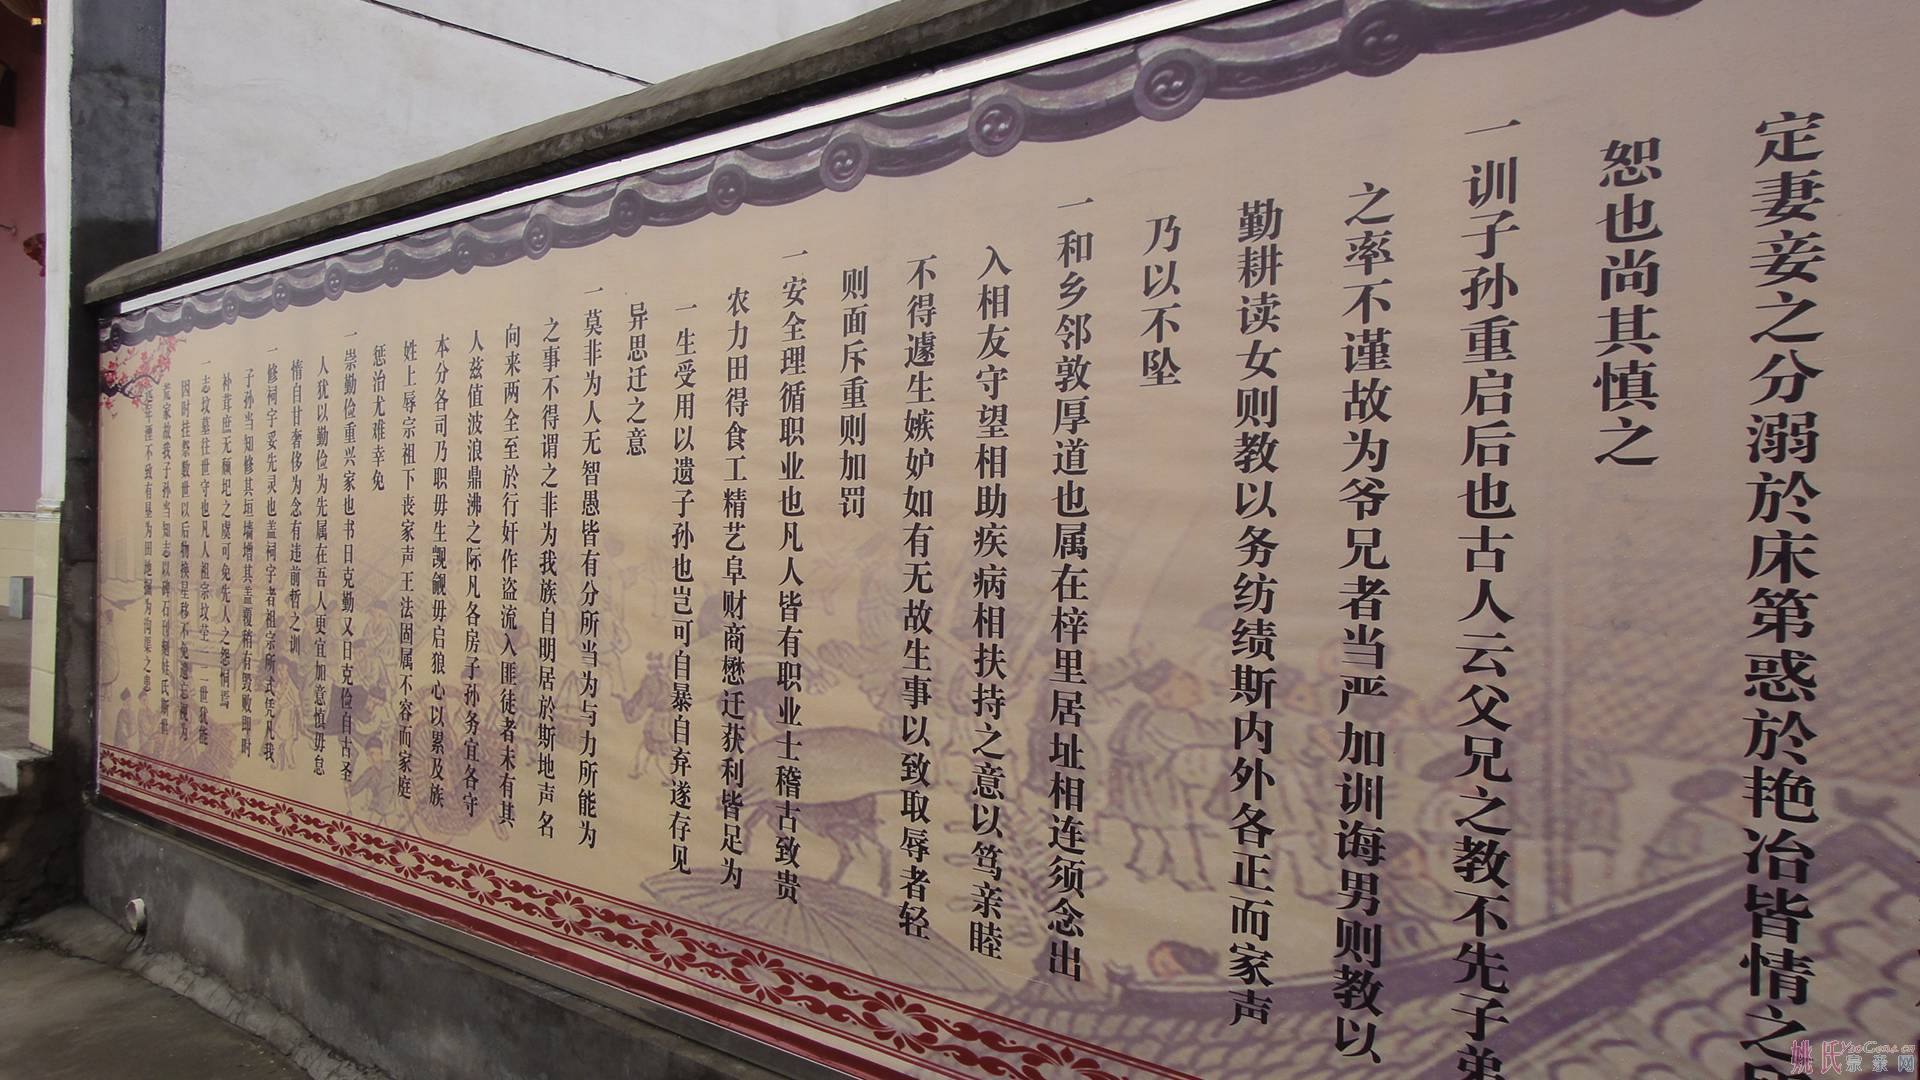 定妻妾之分溺於床第惑於艳冶皆情之
恕也尚其慎之
一训子孙重启后也古人云父兄之教不先子弟
之率不谨故为爷兄者当严加训诲男则教以
勤耕读女则教以务纺绩斯内外各正而家声
乃以不坠
一和乡邻敦厚道也属在梓里居址相连须念出
入相友守望相助疾病相扶持之意以笃亲睦
不得遽生嫉妒如有无故生事以致取辱者轻
则面斥重则加罚
一安全理循职业也凡人皆有职业士稽古致贵
农力田得食工精艺阜财商懋迁获利皆足为
一生受用以遗子孙也岂可自暴自弃遂存见
异思迁之意
一莫非为人无智愚皆有分所当为与力所能为
之事不得谓之非为我族自明居於斯地声名
向来两全至於行奸作盗流入匪徒者未有其
人兹值波浪鼎沸之际凡各房子孙务宜各守
本分各司乃职毋生觊觎毋启狼心以累及族
姓上辱宗祖下丧家声王法固属不容而家庭
惩治尤难幸免
一崇勤俭重兴家也书日克勤又日克俭自古圣
人犹以勤俭为先属在吾人更宜加意慎毋怠
惰自甘奢侈为念有违前哲之训
一修祠宇妥先灵也盖祠宇者祖宗所式凭凡我
子孙当知修其垣墙增其盖覆稍有毁败即时
补葺庶无颓圮之虞可免先人之怨恫焉
一志坟墓往世守也凡人祖宗坟茔一二世犹能
因时挂祭数世以后物换星移不免遗忘视为
荒冢故我子孙当知志以碑石刊刻姓氏斯世
远年湮不致有垦为田地掘为沟渠之患
姚氏宗亲网
YaoGens.cn